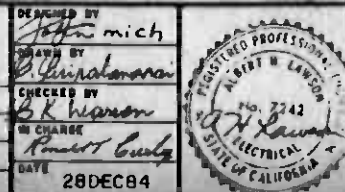 DESIGNED BY
John mich
DRAWN BY
CHECKED BY
B K
IN CHARGE
DATE
28DEC84
REGISTERED PROFESSIONAL
ALBERT H. LAWSON
No. 7242
A H Lawson
ELECTRICAL
STATE OF CALIFORNIA